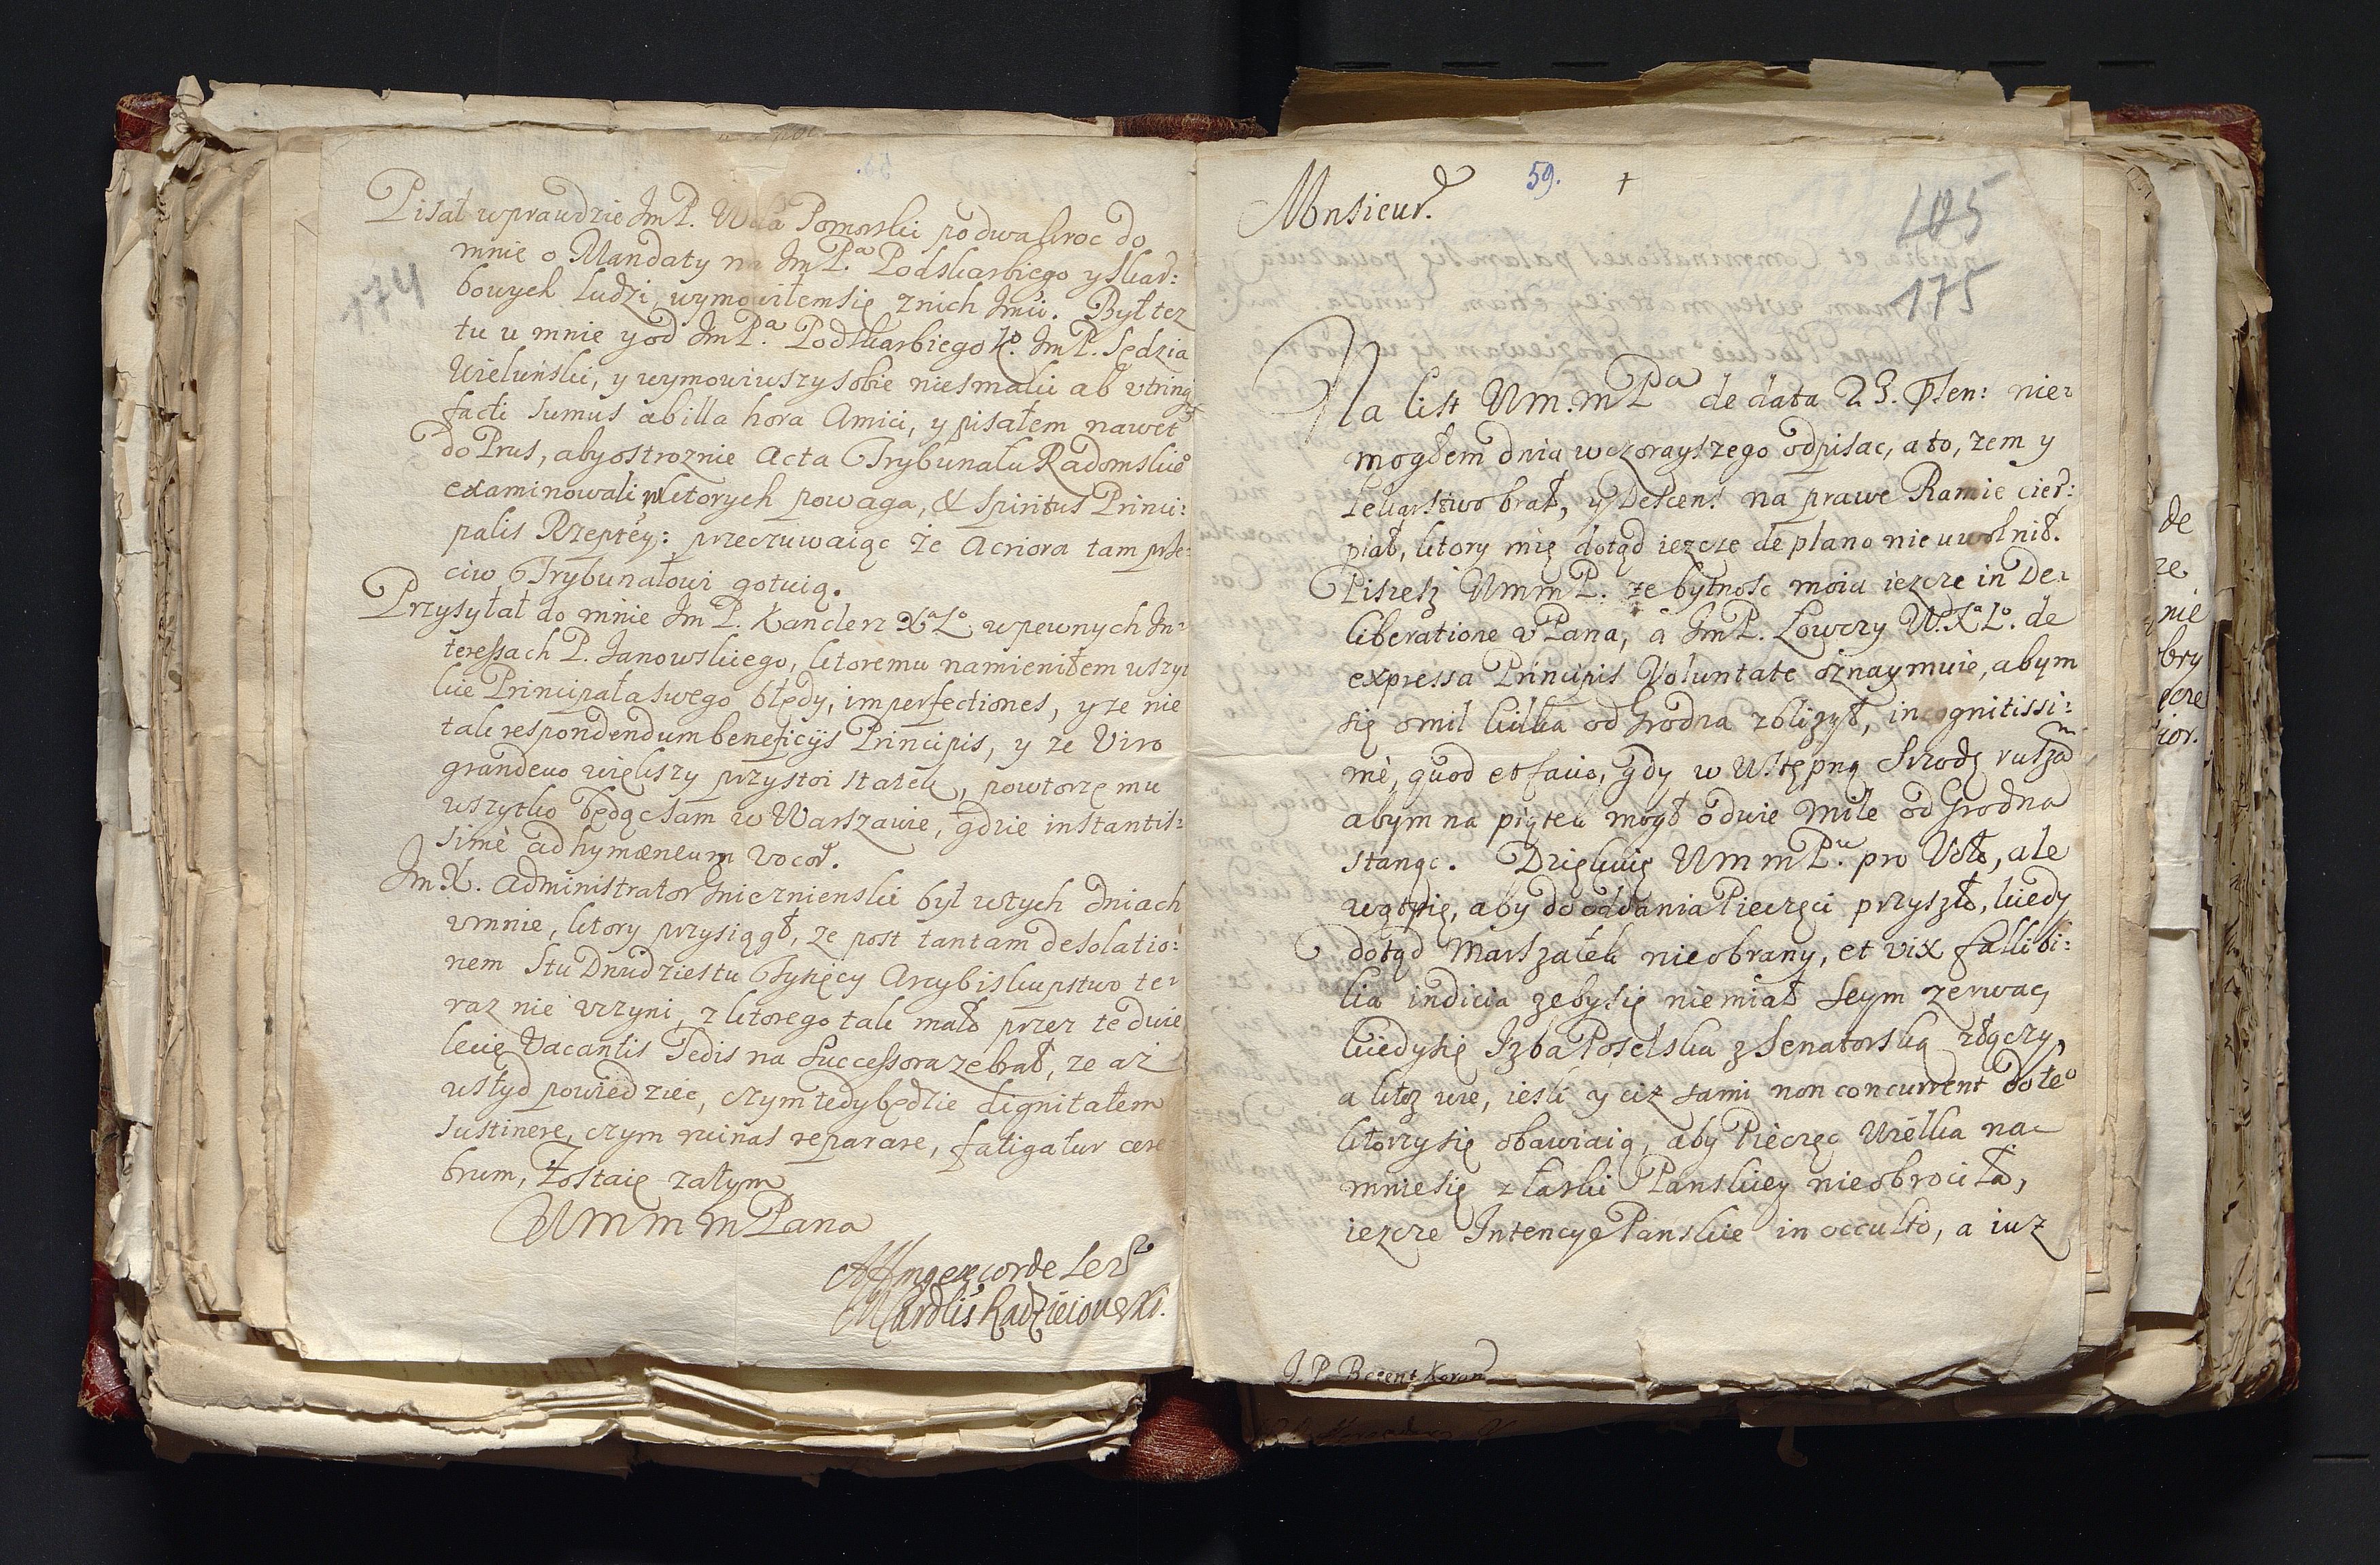 Pisał wprawdzie Jm P. Wda Pomorski podwakroc do
mnie o Mandaty na Jm P.ª Podskarbiego y skar:
bowych ludzi, wymowiłemsię znich Jmći. Był tez
tu u mnie y od Jm P.ª Podskarbiego Jm P. Sędzia
Wieluński, y wymowiwszy sobie niesmaki ab utrinq
facti sumus ab illa hora Amici, y pisałem nawet
do Prus, aby ostroznie Acta Trybunału Radomskiego
examinowali ktorych powaga, est Spiritus Princi:
palis Rzeptey: przeczuwaiąc że Acriora tam prze:
ciw Trybunałowi gotuią.
Przysyłał do mnie Jm P. Kanclerz W.X.L. wpewnych In:
teressach P. Janowskiego, ktoremu namieniłem wszyt
kie Principała swego błędy, imperfectiones, y ze nie
tak respondendum beneficijs Principis, y ze Viro
grandevo większy przystoi statek, powtorzę mu
wszytko będąc sam w Warszawie, gdzie instantis:
simè ad hymæneum vocor.
Jm X. Administrator Gnieznienski był wtych dniach
umnie, ktory przysiągł, ze post tantam desolatio:
nem Stu Dwudziestu Tysięcy Arcybiskupstwo te:
raz nie uczyni, z ktorego tak mało przez te dwie
lecie Vacantis Sedis na Successora zebrał, ze aż
wstyd powiedziec, czym tedy będzie dignitatem
sustinere, czym ruinas reparare, fatigatur cere
brum, Zostaię zatym
Wm m m Pana
ex corde
Radzieiowski.
174
Monsieur.
59.
+
105
175
Na list Wm. m Pª de data 23. Præsen: nie:
mogłem dnia wczorayszego odpisac, a to, zem y
lekarstwo brał, y Descens na prawe Ramie cier:
piał, ktory mię dotąd iezcze de plano nie uwolnił.
Piszesz Wm m P. ze bytnosc moia iezcze in De:
liberatione u Pana, á Jm P. Łowczy W.X.L. de
expressa Principis Voluntate oznaymuie, abym
się o mil kilka od Grodna zbliżył, incognitissi:
mè, quod et facio, gdy w Wstępną Srzodę ruszam
abym na piątek mogł o dwie mile od Grodna
stanąc. Dziękuię Wm m P. pro Voto, ale
wątpię, aby do oddania Pieczęci przyszło, kiedy
dotąd Marszałek nieobrany, et vix fallibi:
lia indicia zeby się niemiał Seym zerwac,
kiedy się Izba Poselska z Senatorską złączy,
a ktoz wie, iesli y ciz sami non concurrent do teo
ktorzy się obawiaią, aby Pieczęc Wielka na
mnie się z łaski Panskiey nie obrociła,
iezcze Intencye Panskie in occulto, a iuz
J. P. Regent Koron
de
ze
nie
bry
ecze
ior.